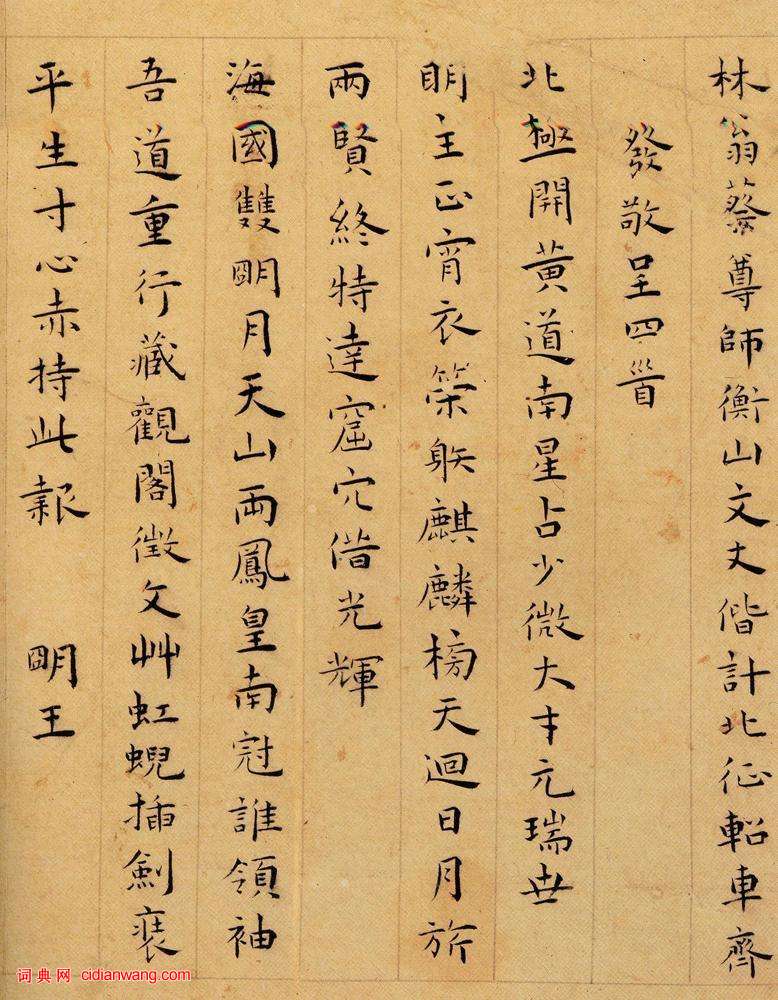 林翁蔡尊師衡山文丈偕計北征軺車齊
發敬呈四首
北極開黃道南星占少微大才元瑞世
明主正宵衣策躲麒麟榜天迴日月旂
兩賢終特達窟穴借光輝
海國雙明月天山兩鳳皇南冠誰領袖
吾道重行藏觀閣徵文艸虹蜺插劍裝
平生寸心赤持此報 明王
词典网 cidianwang.com